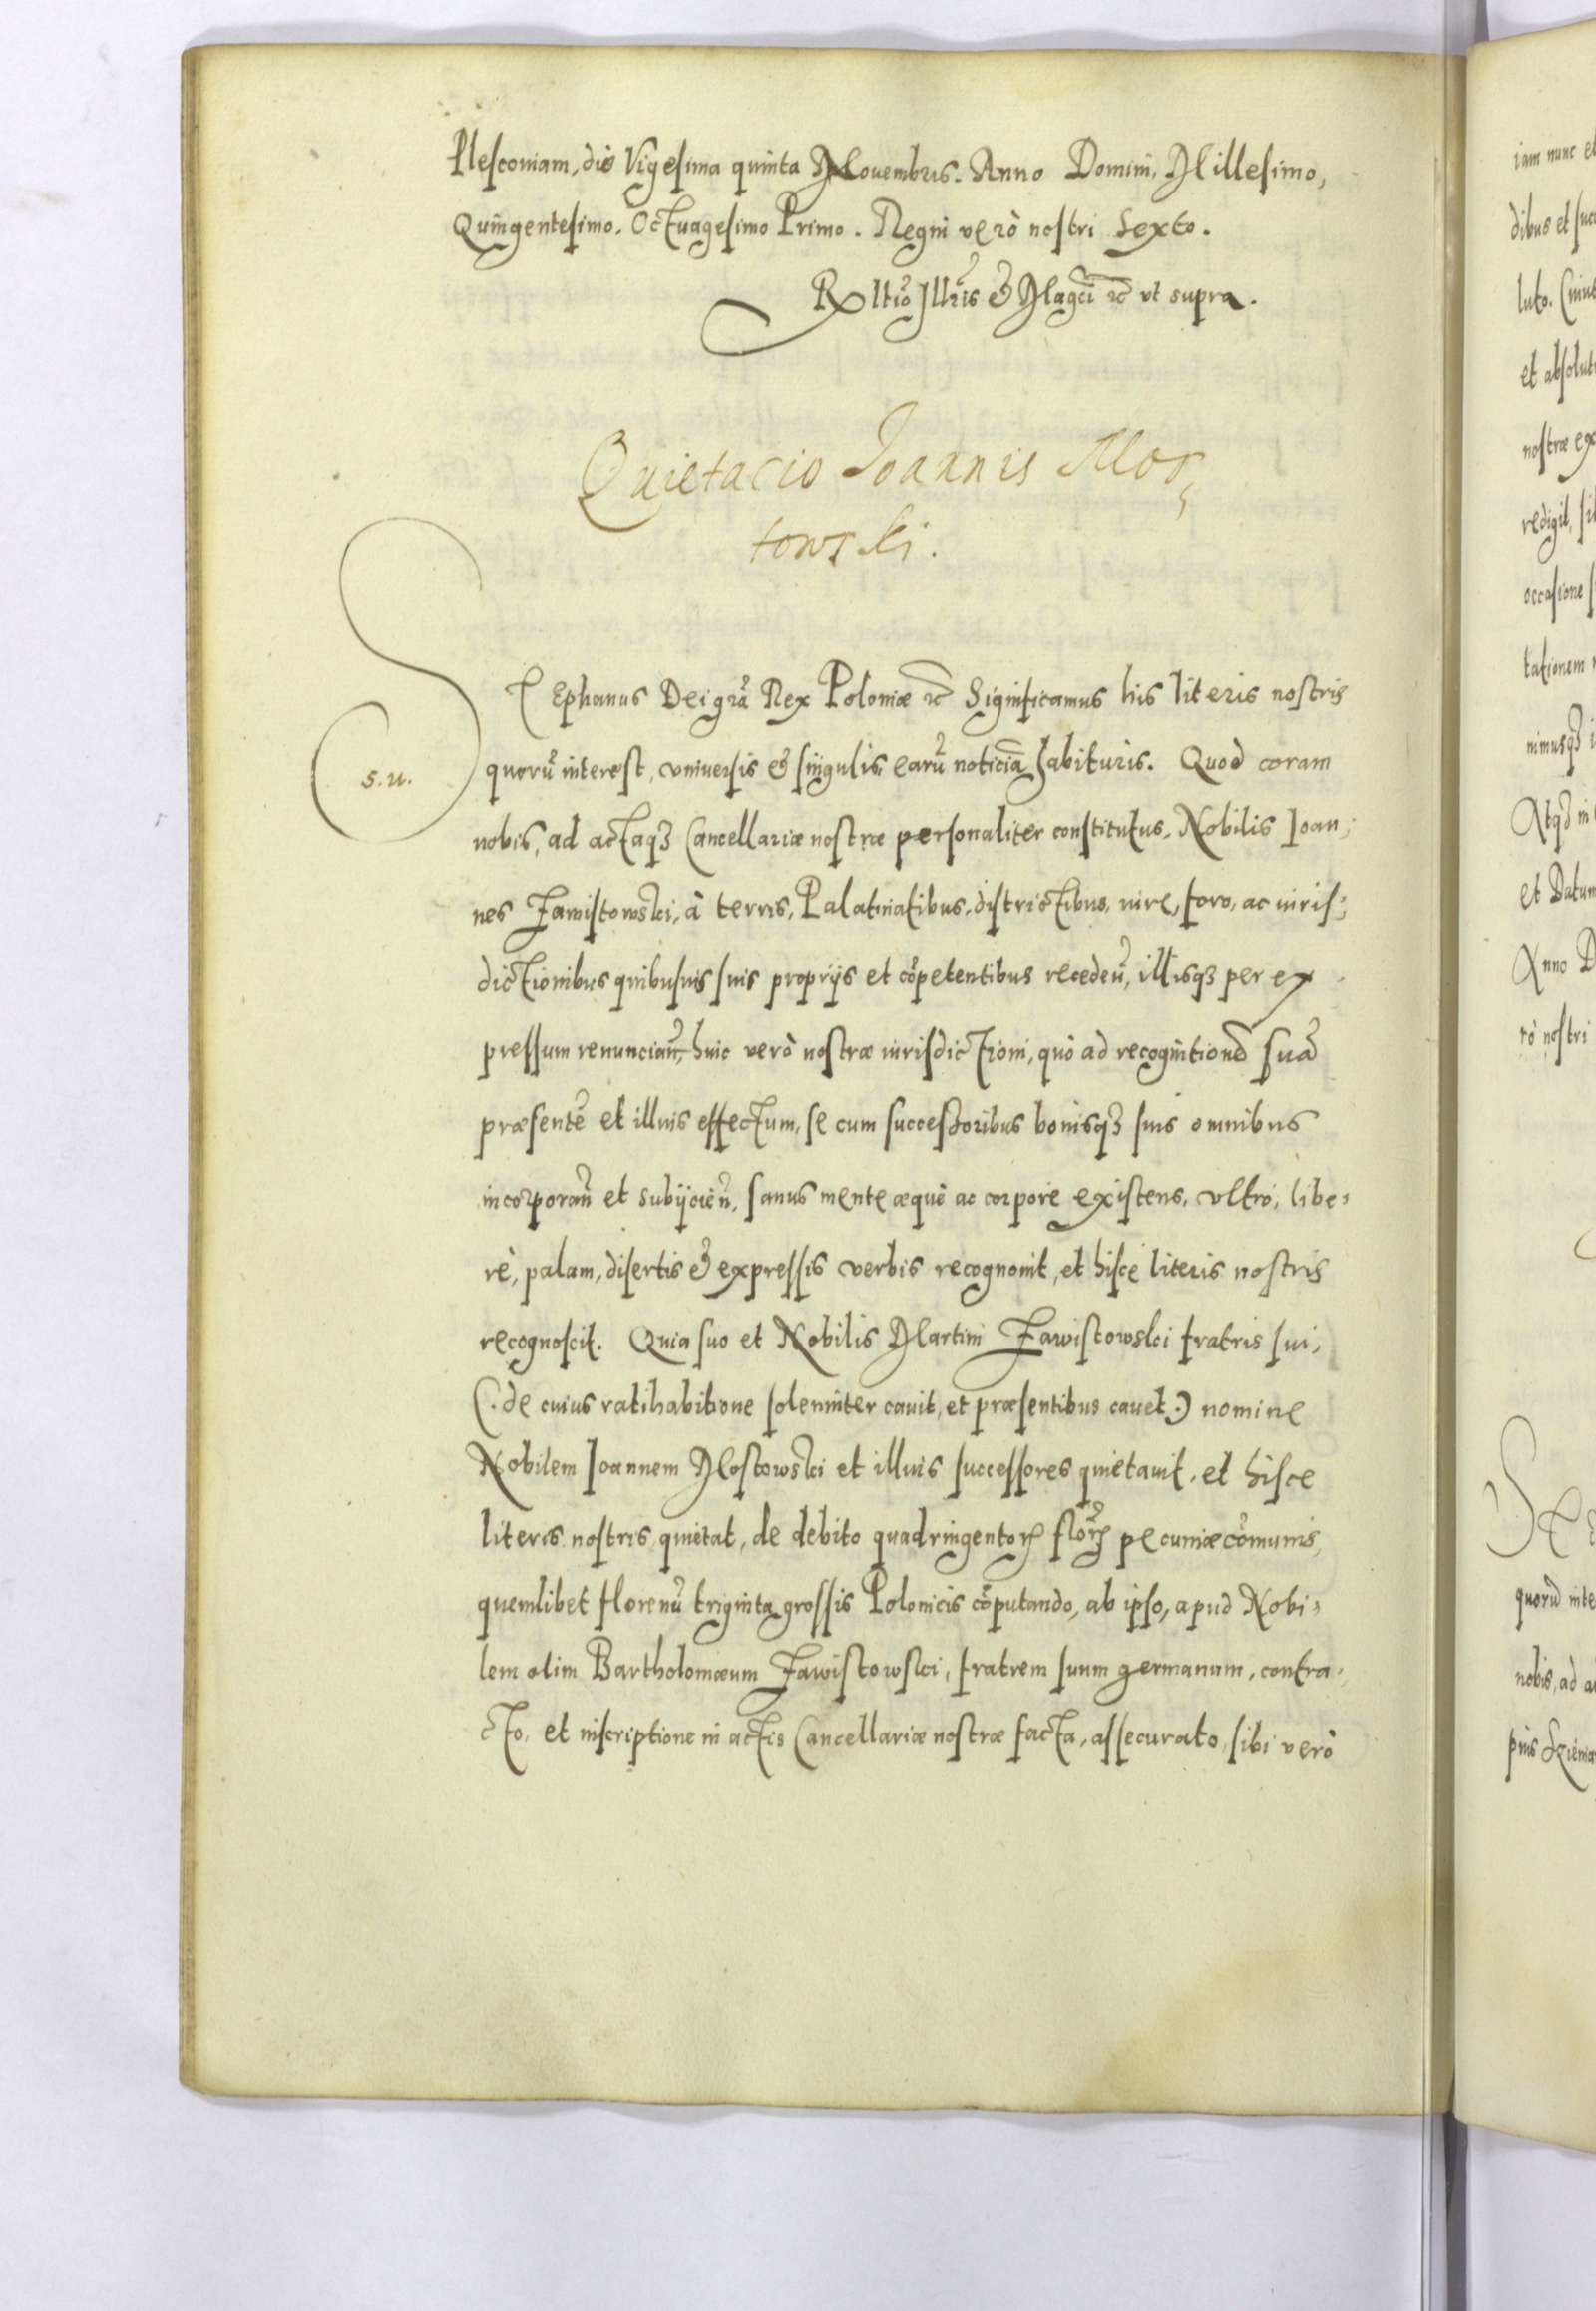 Plesconiam, die Vigesima quinta Nouembris. Anno Domini, Millesimo,
Quingentesimo. Octuagesimo Primo. Regni verò nostri Sexto.
Rltio Illris & Magci rc vt supra.
Quietacio Joannis Mos,
towski.
STEphanus Dei gra Rex Poloniæ rc Significamus his literis nostris
s.u.
quorũ interest, vniuersis & singulis, earũ noticiã habituris. Quod coram
nobis, ad actaqꝫ Cancellariæ nostræ personaliter constitutus. Nobilis Ioan,
nes Zawistowski, à terris, Palatinatibus, districtibus, iure, foro, ac iuris,
dictionibus quibusuis suis proprijs et cõpetentibus recedeñ, illisqꝫ per ex
pressum renunciañ, huic verò nostræ iurisdictioni, quò ad recognitionẽ suã
præsentẽ et illius effectum, se cum successoribus bonisqꝫ suis omnibus
incorporañ et subijcieñ, sanus mente æquè ac corpore existens, vltrò, libe,
rè, palam, disertis & expressis verbis recognouit, et hisce literis nostris
recognoscit. Quia suo et Nobilis Martini Zawistowski fratris sui,
(. de cuius ratihabitione solenniter cauit, et præsentibus cauet .) nomine
Nobilem Ioannem Mostowski et illius successores quietauit, et hisce
literis nostris quietat, de debito quadringentoꝝ floꝝ pecuniæ cõmunis,
quemlibet florenũ triginta grossis Polonicis cõputando, ab ipso, apud Nobi,
lem olim Bartholomæum Zawistowski, fratrem suum germanum, contra,
cto, et inscriptione in actis Cancellariæ nostræ facta, assecurato, sibi verò
iam nunc et
dibus et suc
luto.
et absolut
nostræ ex
redigit,
occasione
tationem
nimusqꝫ
Atqꝫ in
et Datum
Anno D
rò nostri
STE
quorũ inte
nobis, ad a